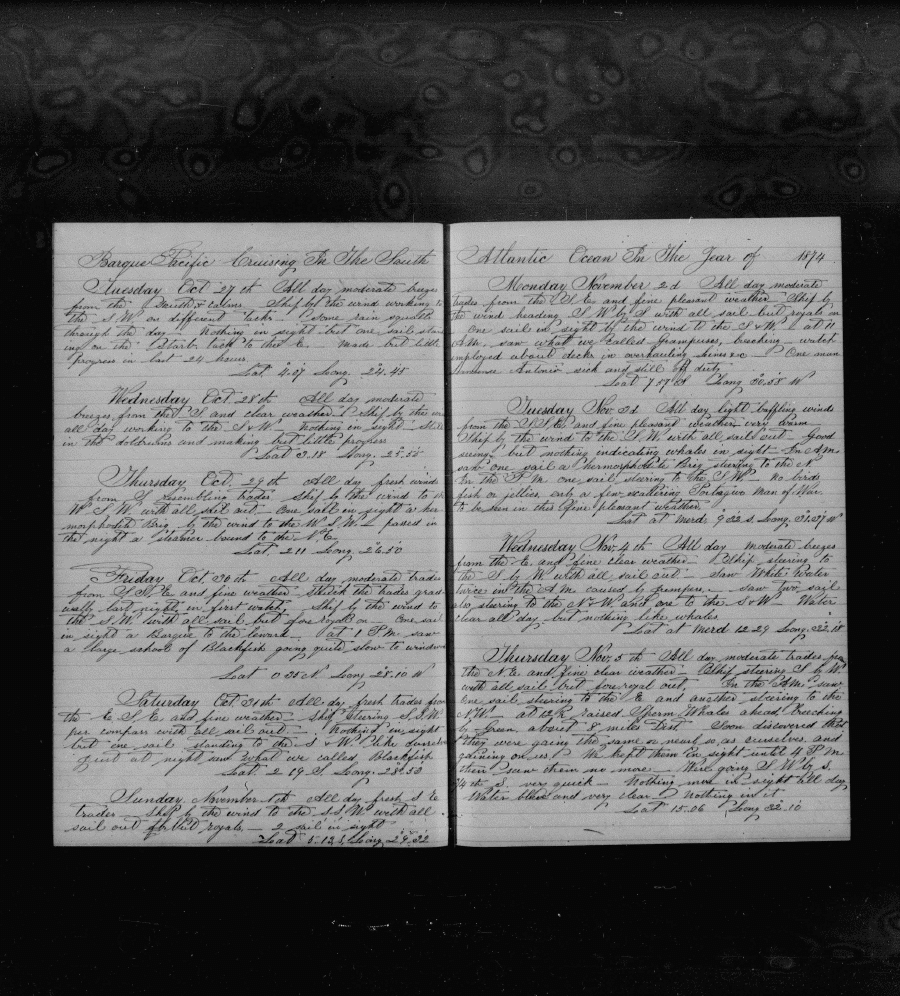 Barque Pacific Cruising In The South
Tuesday Oct 27th All day moderate breezes
from the South & calms. Ship by the wind working to
the S.W. on different tacks. Some rain squalls
through the day. Nothing in sight but one sail stand
ing on the Starb. tack to the E. Made but little
Progress in last 24 hours.
Lat. 4.07 Long. 24.45
Wednesday Oct 28th All day moderate
breezes from the S and clear weather. Ship by the
all day working to the S & W. Nothing in sight. Still
in the doldrums and making but little progress
Lat 3.18 Long. 25.55
Thursday Oct. 29th All day fresh winds
from S resembling trades. Ship by the wind to the
W.S.W. with all sail out. One sail in sight a her
morphodite Brig by the wind to the W.S.W. passed in
the night a steamer bound to the N.E.
Lat 2.11 Long. 26.50
Friday Oct. 30th All day moderate trades
from S.S.E. and fine weather. Struck the trades grad
ually last night in first watch. Ship by the wind to
the S.W. with all sail but fore royal on. One sail
in sight a Barque to the leward. at 1 P.M. saw
a large school of Blackfish going quite slow to windward
Lat 0.35 N. Long 28.10 W
Saturday Oct. 31st All day fresh trades from
the E.S.E. and fine weather. Ship steering S.S.W.
per compass with all sail out. Nothing in sight
but one sail standing to the S & W. like ourselves
Just at night saw what we called Blackfish
Lat. 2.19 S Long. 28.50
Sunday November 1st All day fresh S E
trades. Ship by the wind to the S.S.W. with all
sail out but royals. 2 sail in sight
Lat 5.12 S. Long. 29.32
Atlantic Ocean In The Year of 1874
Monday November 2d All day moderate
trades from the S.E. and fine pleasant weather Ship by
the wind heading S.W. by S with all sail but royals on
One sail in sight by the wind to the S & W. at 11
A.M. saw what we called Grampuses, breching. watch
employed about decks in overhauling lines &c. One man
Antonio sick and still off duty
Lat 7.57 S Long 30.58 W
Tuesday Nov. 3d. All day light baffling winds
from the S.S.E. and fine pleasant weather very warm
Ship by the wind to the S.W. with all sail out. Good
seeing but nothing indicating whales in sight. In A.M.
saw one sail a hermorphodite Brig steering to the N.
In the P.M. one sail steering to the S.W. no birds
fish or jellies, only a few scattering Portuguee Man of War.
to be seen in this fine pleasant weather
Lat at merd. 9.32 S. Long. 31.27 W
Wednesday Nov. 4th All day moderate breezes
from the E. and fine clear weather. Ship steering to
the S by W with all sail out. Saw White Water
twice in the A.M. caused by Grampus. saw two sail
also steering to the N & W. and one to the S & W. Water
clear all day but nothing like whales
Lat at Merd 12.29 Long. 32.18
Thursday Nov. 5th All day moderate trades from
the N.E. and fine clear weather. Ship steering S by W
with all sail but fore royal out. In the A.M. saw
one sail steering to the E and another steering to the
N.W. at 12½ raised Sperm Whales ahead breeching
by Grun. about 8 miles dist. Soon discovered that
they were going the same or nearly so as ourselves, and
gaining on us. We kept them in sight until 4 P.M.
then saw them no more. Were going S.W. by S.
¼ to S. very quick. Nothing more in sight all day
Water blue and very clear. Nothing in it
Lat 15.06 Long 32.10